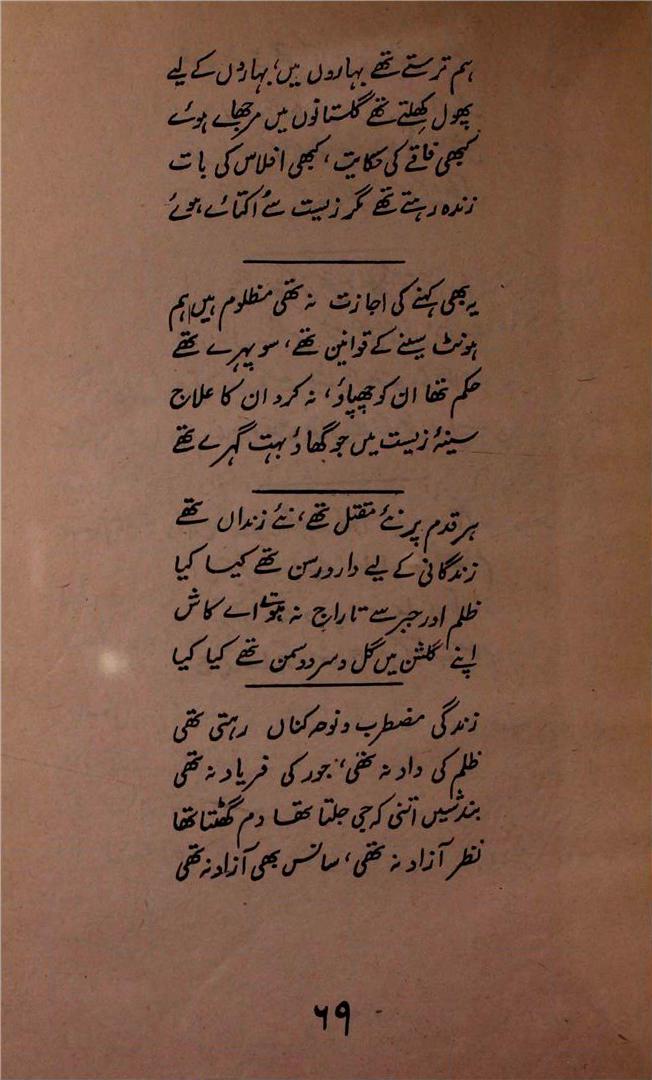 ہم ترستے تھے بہاروں میں، بہاروں کے لیے
پھول کھلتے تھے گلستانوں میں مرجھائے ہوئے
کبھی فاقے کی حکایت، کبھی افلاس کی بات
زندہ رہتے تھے مگر زیست سے اُکتائے ہوئے
یہ بھی کہنے کی اجازت نہ تھی مظلوم ہیں ہم
ہونٹ سینے کے قوانین تھے، سو پہرے تھے
حکم تھا ان کو چھپاؤ، نہ کرو ان کا علاج
سینۂ زیست میں جو گھاؤ بہت گہرے تھے
ہر قدم پر نئے مقتل تھے، نئے زنداں تھے
زندگانی کے لیے دار و رسن تھے کیا کیا
ظلم اور جبر سے تاراج نہ ہوتے اے کاش
اپنے گلشن میں گل و سرو و سمن تھے کیا کیا
زندگی مضطرب و نوحہ کناں رہتی تھی
ظلم کی داد نہ تھی، جور کی فریاد نہ تھی
بندشیں اتنی کہ جی جلتا تھا دم گھٹتا تھا
نظر آزاد نہ تھی، سانس بھی آزاد نہ تھی
۶۹